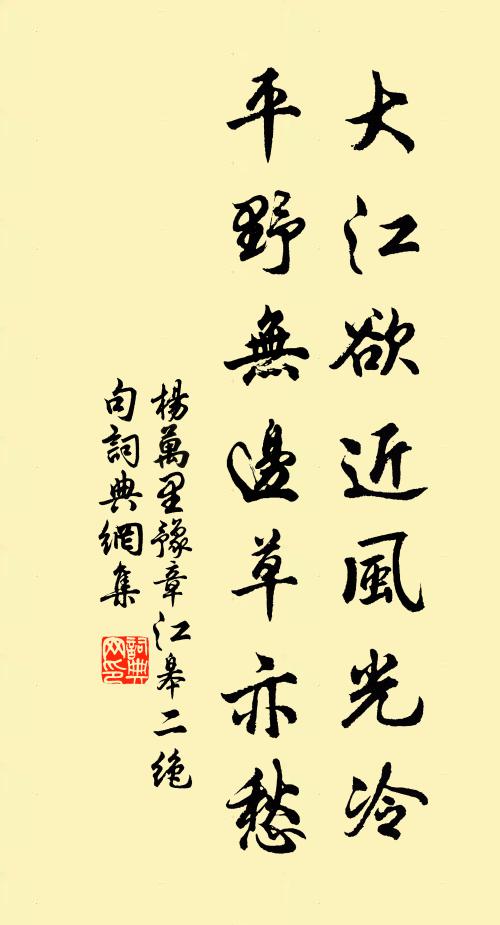 大江欲近風光冷
平野無邊草亦愁
楊萬里豫章江皋二絶
句詞典網集
詞典網印